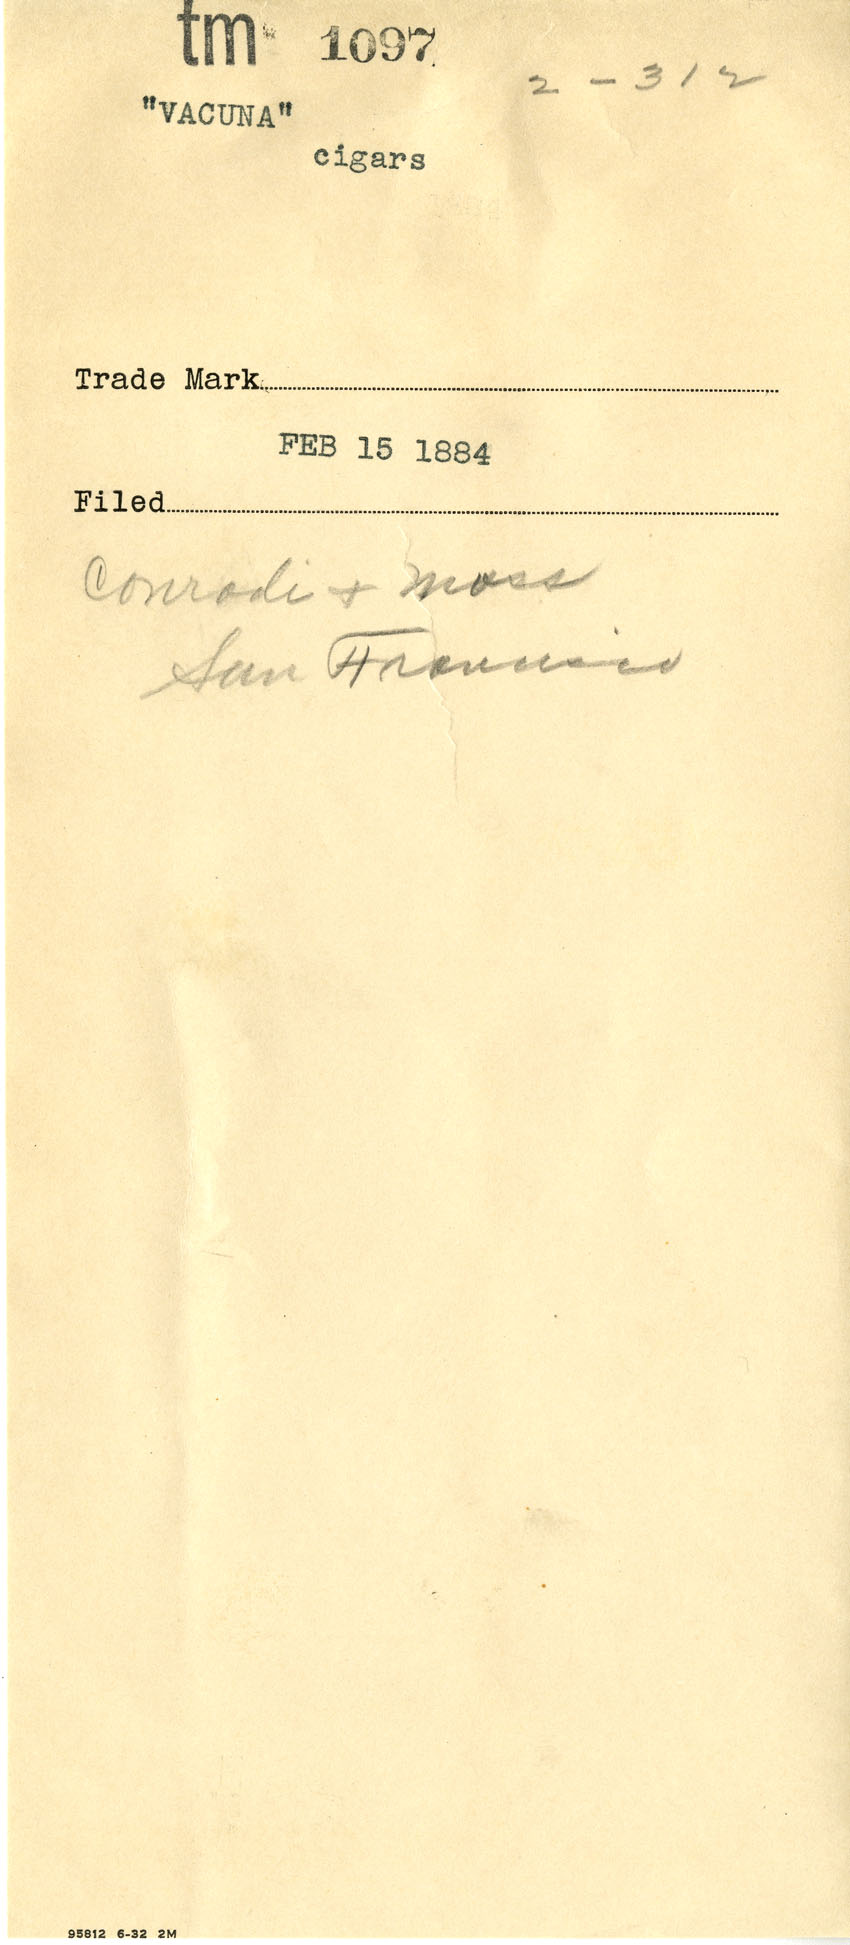 tm 1097
2-312
"VACUNA"
cigars
Trade Mark
FEB 15 1884
Filed
Conradi + Moss
San Francisco
95812 6-32 2M